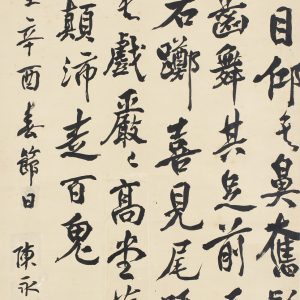 目仰其鼻奮
齒舞其足前
右躑喜見尾
其戲嚴々高堂
顛沛走百鬼
辛酉春節日 陳永